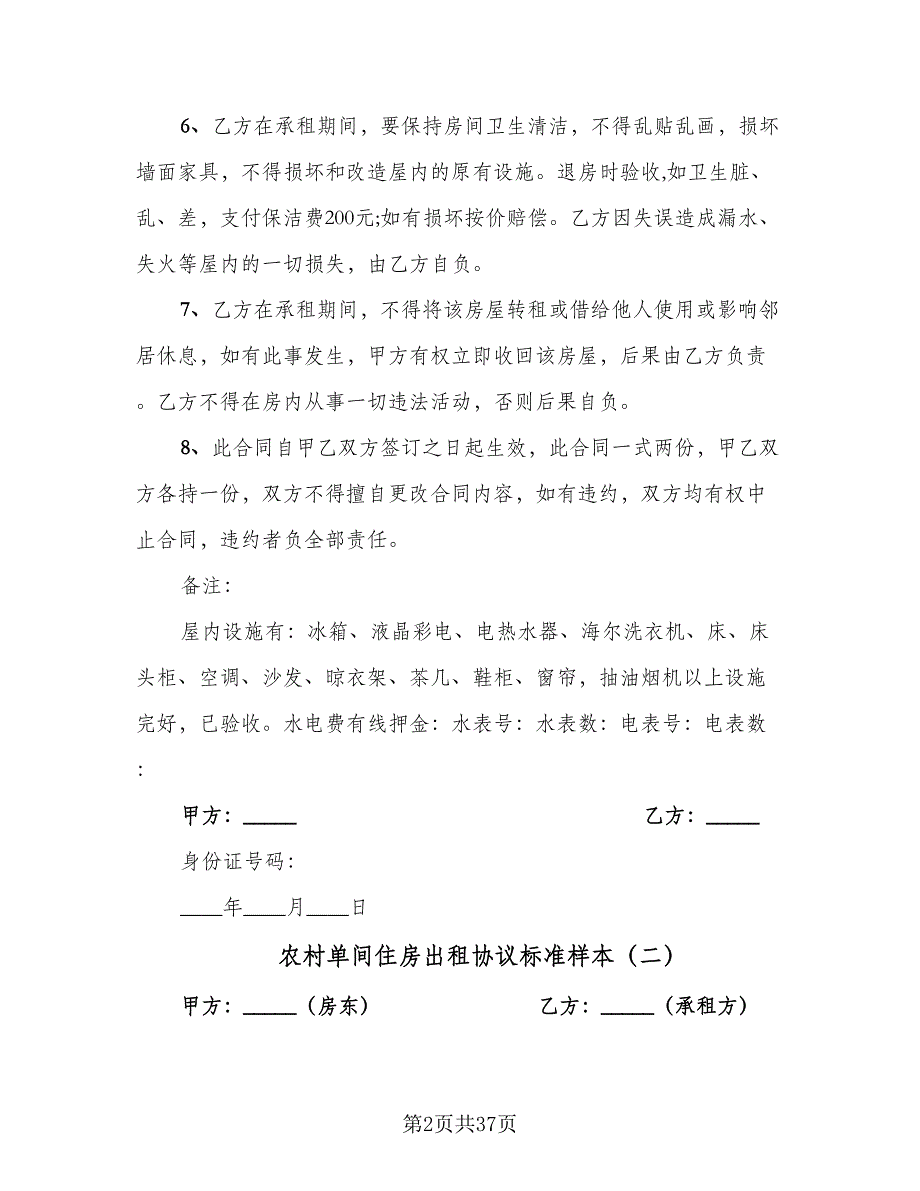 6、乙方在承租期间，要保持房间卫生清洁，不得乱贴乱画，损坏
墙面家具，不得损坏和改造屋内的原有设施。退房时验收,如卫生脏、
乱、差，支付保洁费200元;如有损坏按价赔偿。乙方因失误造成漏水、
失火等屋内的一切损失，由乙方自负。
7、乙方在承租期间，不得将该房屋转租或借给他人使用或影响邻
居休息，如有此事发生，甲方有权立即收回该房屋，后果由乙方负责
。乙方不得在房内从事一切违法活动，否则后果自负。
8、此合同自甲乙双方签订之日起生效，此合同一式两份，甲乙双
方各持一份，双方不得擅自更改合同内容，如有违约，双方均有权中
止合同，违约者负全部责任。
备注：
屋内设施有：冰箱、液晶彩电、电热水器、海尔洗衣机、床、床
头柜、空调、沙发、晾衣架、茶几、鞋柜、窗帘，抽油烟机以上设施
完好，已验收。水电费有线押金：水表号：水表数：电表号：电表数
：
甲方：_____ 乙方：_____
身份证号码：
____年____月____日
农村单间住房出租协议标准样本（二）
甲方：_____（房东） 乙方：_____（承租方）
第2页共37页